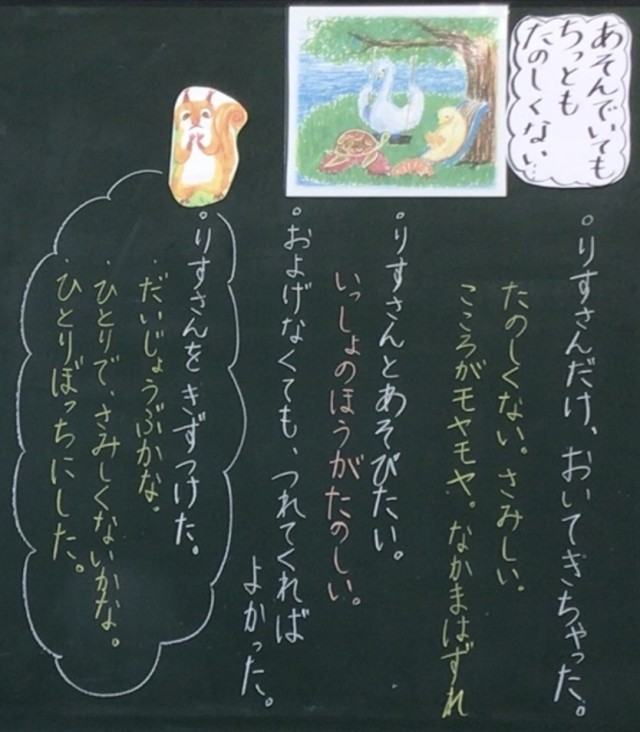 あそんでいても
ちっとも
たのしくない…
。りすさんだけ、おいてきちゃった。
たのしくない。さみしい。
こころがモヤモヤ。なかまはずれ
。りすさんとあそびたい。
いっしょのほうがたのしい。
。およげなくても、つれてくれば
よかった。
。りすさんをきずつけた。
・だいじょうぶかな。
・ひとりで、さみしくないかな。
・ひとりぼっちにした。